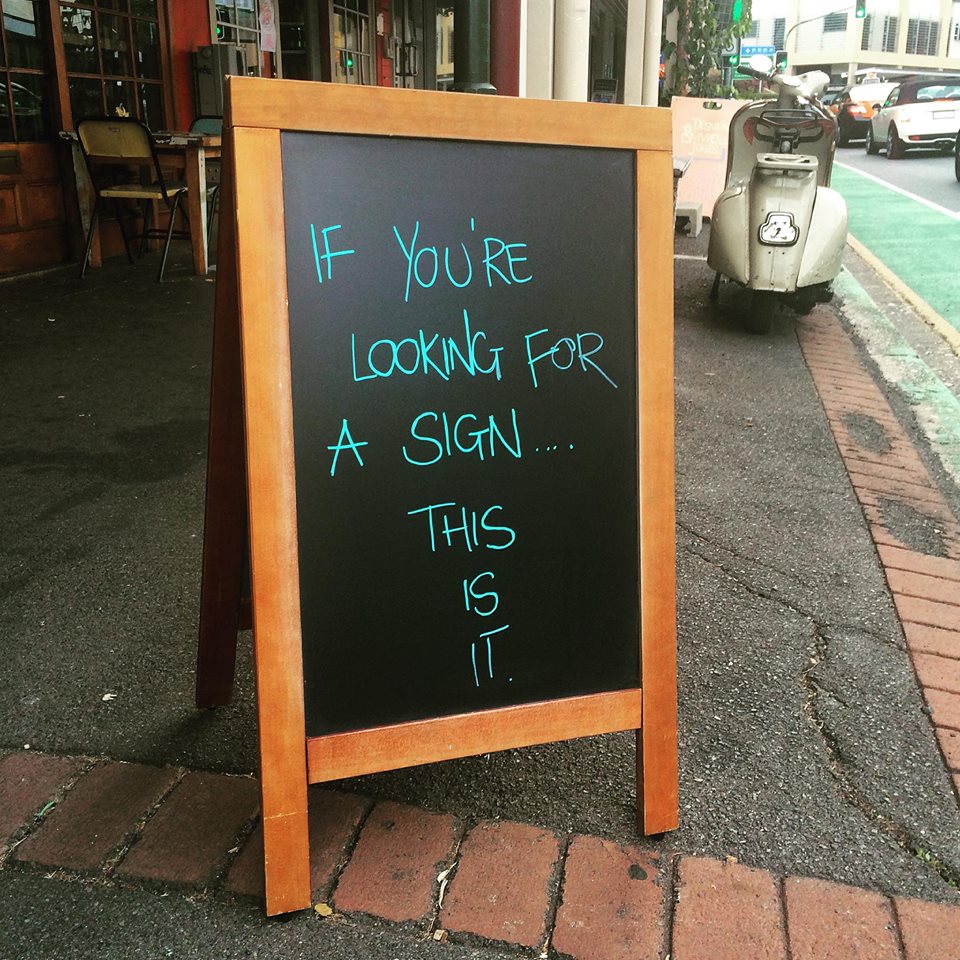 IF YOU'RE
LOOKING FOR
A SIGN....
THIS
IS
IT.